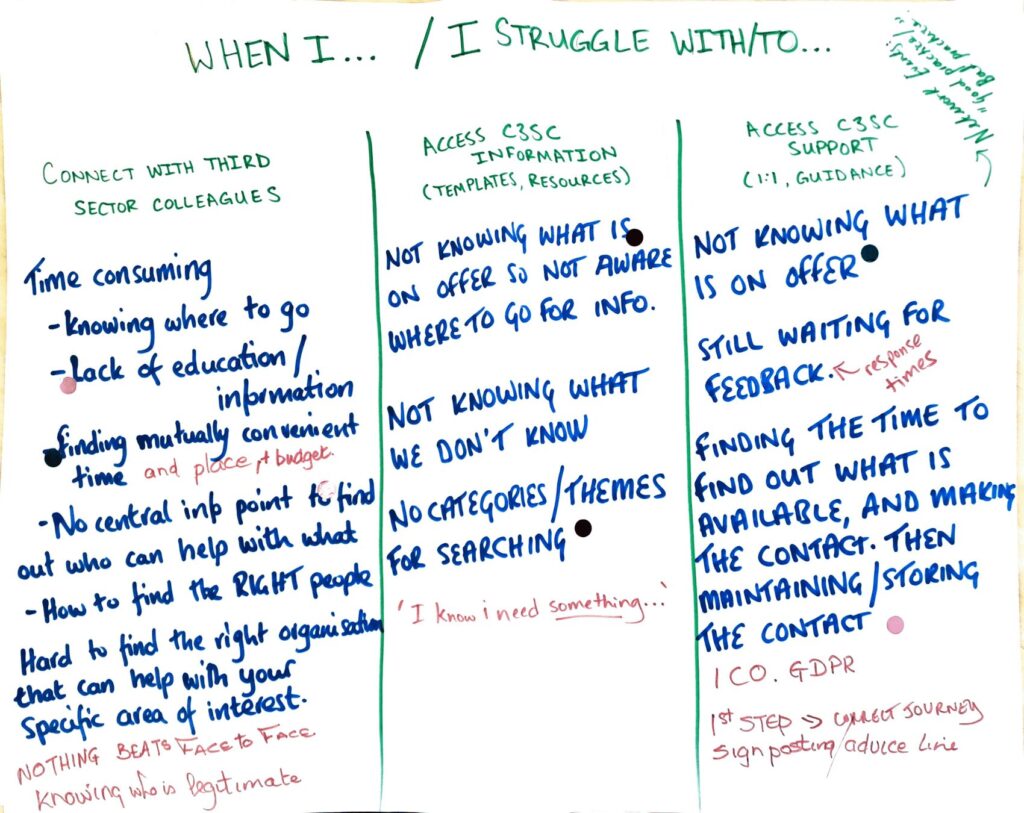 WHEN I... / I STRUGGLE WITH/TO...
Network Events:
"good practice/
Bad practice"
CONNECT WITH THIRD
SECTOR COLLEAGUES
Time consuming
- Knowing where to go
- Lack of education/
information
- finding mutually convenient
time and place, + budget.
- No central info point to find
out who can help with what
- How to find the RIGHT people
Hard to find the right organisation
that can help with your
specific area of interest.
NOTHING BEATS FACE to FACE
Knowing who is legitimate
ACCESS C3SC
INFORMATION
(TEMPLATES, RESOURCES)
NOT KNOWING WHAT IS
ON OFFER SO NOT AWARE
WHERE TO GO FOR INFO.
NOT KNOWING WHAT
WE DON'T KNOW
NO CATEGORIES/THEMES
FOR SEARCHING
'I know i need something...'
ACCESS C3SC
SUPPORT
(1:1, GUIDANCE)
NOT KNOWING WHAT
IS ON OFFER
STILL WAITING FOR
FEEDBACK. ← response
times
FINDING THE TIME TO
FIND OUT WHAT IS
AVAILABLE, AND MAKING
THE CONTACT. THEN
MAINTAINING/STORING
THE CONTACT
ICO. GDPR
1st STEP → CORRECT JOURNEY
Sign posting/advice line